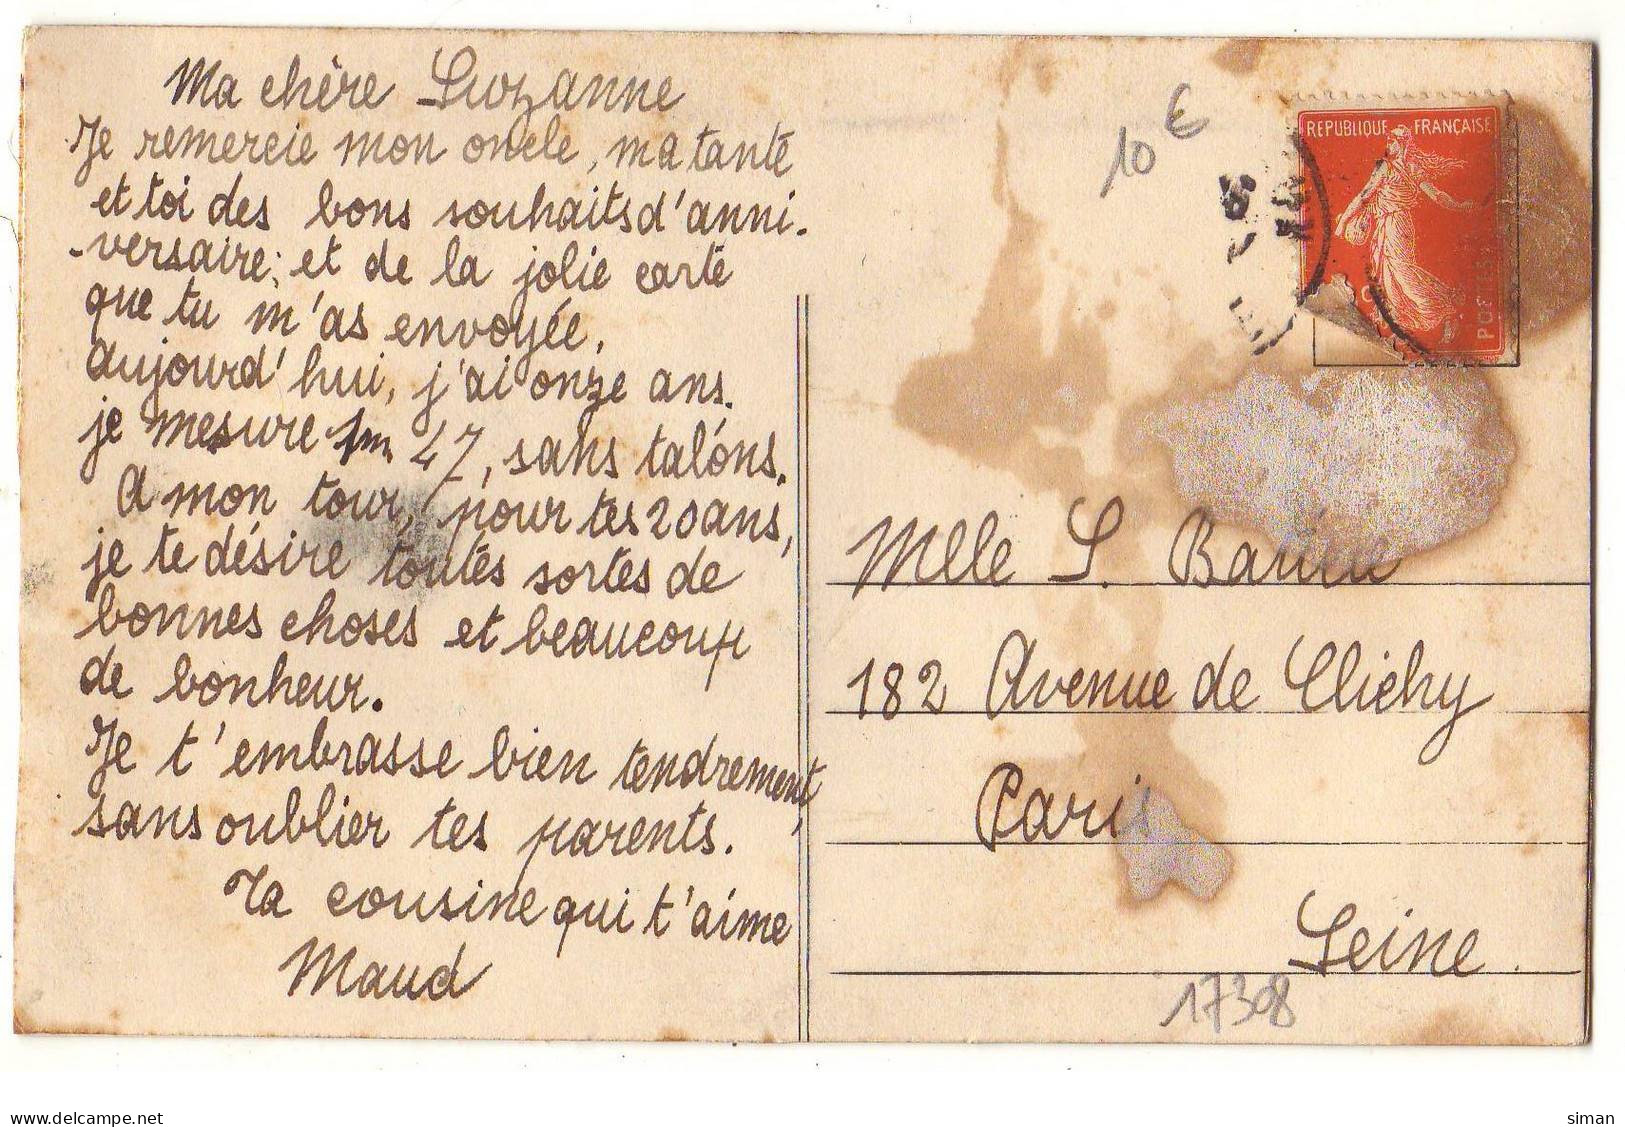 Ma chère Suzanne
Je remercie mon oncle, ma tante
et toi des bons souhaits d'anni-
-versaire; et de la jolie carte
que tu m'as envoyée,
aujourd'hui, j'ai onze ans.
je mesure 1m 47, sans talons.
A mon tour, pour tes 20 ans,
je te désire toutes sortes de
bonnes choses et beaucoup
de bonheur.
Je t'embrasse bien tendrement,
sans oublier tes parents.
Ta cousine qui t'aime
Maud
10 €
REPUBLIQUE FRANÇAISE
POSTES
Mlle S.
182 Avenue de Clichy
Paris
Seine.
17308
www.delcampe.net
siman